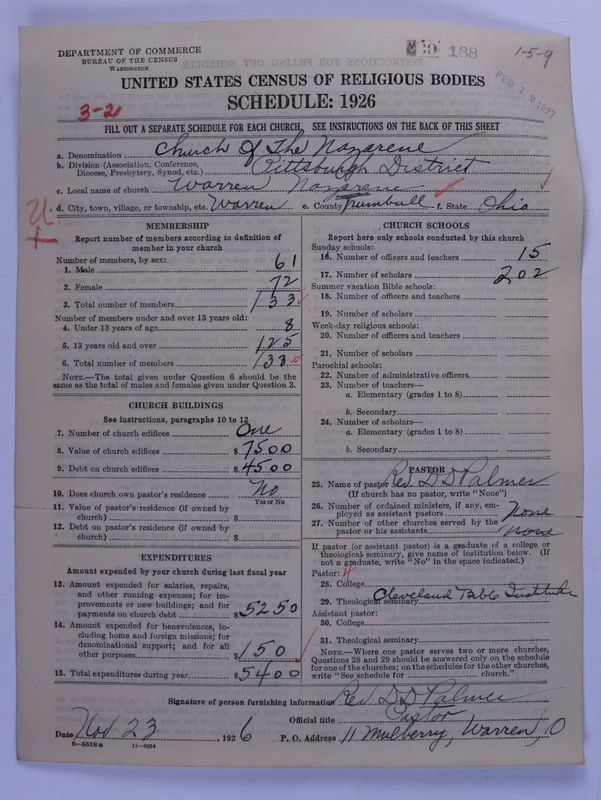 DEPARTMENT OF COMMERCE
BUREAU OF THE CENSUS
WASHINGTON
188
1-5-9
UNITED STATES CENSUS OF RELIGIOUS BODIES
FEB 19 1927
SCHEDULE: 1926
3-21
FILL OUT A SEPARATE SCHEDULE FOR EACH CHURCH. SEE INSTRUCTIONS ON THE BACK OF THIS SHEET
a. Denomination Church of The Nazarene
b. Division (Association, Conference, Diocese, Presbytery, Synod, etc.) Pittsburgh District
c. Local name of church Warren Nazarene
d. City, town, village, or township, etc. Warren e. County Trumbull f. State Ohio
MEMBERSHIP
Report number of members according to definition of
member in your church
Number of members, by sex:
1. Male 61
2. Female 72
3. Total number of members 133
Number of members under and over 13 years old:
4. Under 13 years of age 8
5. 13 years old and over 125
6. Total number of members 133
NOTE.—The total given under Question 6 should be the
same as the total of males and females given under Question 3.
CHURCH BUILDINGS
See instructions, paragraphs 10 to 12
7. Number of church edifices One
8. Value of church edifices $7500
9. Debt on church edifices $4500
10. Does church own pastor's residence No
Yes or No
11. Value of pastor's residence (if owned by
church) $
12. Debt on pastor's residence (if owned by
church) $
EXPENDITURES
Amount expended by your church during last fiscal year
13. Amount expended for salaries, repairs,
and other running expenses; for im-
provements or new buildings; and for
payments on church debt $5250
14. Amount expended for benevolences, in-
cluding home and foreign missions; for
denominational support; and for all
other purposes $150
15. Total expenditures during year $5400
CHURCH SCHOOLS
Report here only schools conducted by this church
Sunday schools:
16. Number of officers and teachers 15
17. Number of scholars 202
Summer vacation Bible schools:
18. Number of officers and teachers
19. Number of scholars
Week-day religious schools:
20. Number of officers and teachers
21. Number of scholars
Parochial schools:
22. Number of administrative officers
23. Number of teachers—
a. Elementary (grades 1 to 8)
b. Secondary
24. Number of scholars—
a. Elementary (grades 1 to 8)
b. Secondary
PASTOR
25. Name of pastor Rev. D D Palmer
(If church has no pastor, write "None")
26. Number of ordained ministers, if any, em-
ployed as assistant pastors None
27. Number of other churches served by the
pastor or his assistants None
If pastor (or assistant pastor) is a graduate of a college or
theological seminary, give name of institution below. (If
not a graduate, write "No" in the space indicated.)
Pastor:
28. College
29. Theological seminary Cleveland Bible Institute
Assistant pastor:
30. College
31. Theological seminary
NOTE.—Where one pastor serves two or more churches,
Questions 28 and 29 should be answered only on the schedule
for one of the churches; on the schedules for the other churches,
write "See schedule for church."
Signature of person furnishing information Rev. D D Palmer
Official title Pastor
Date Nov 23, 1926 P. O. Address 11 Mulberry, Warren, O
8-5518 a 11-9024